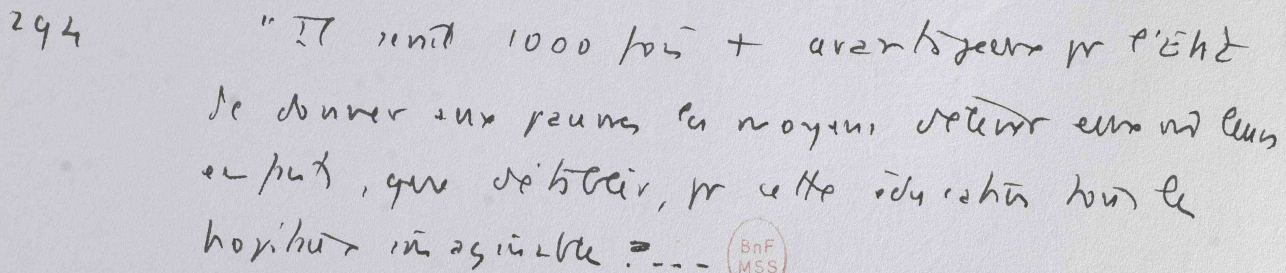 294 "Il serait 1000 fois + avantageux pr l'État
de donner aux pauvres les moyens d'élever eux-m leurs
enfants, que d'établir, pr cette éducation tous les
hôpitaux imaginables ....
BnF
MSS